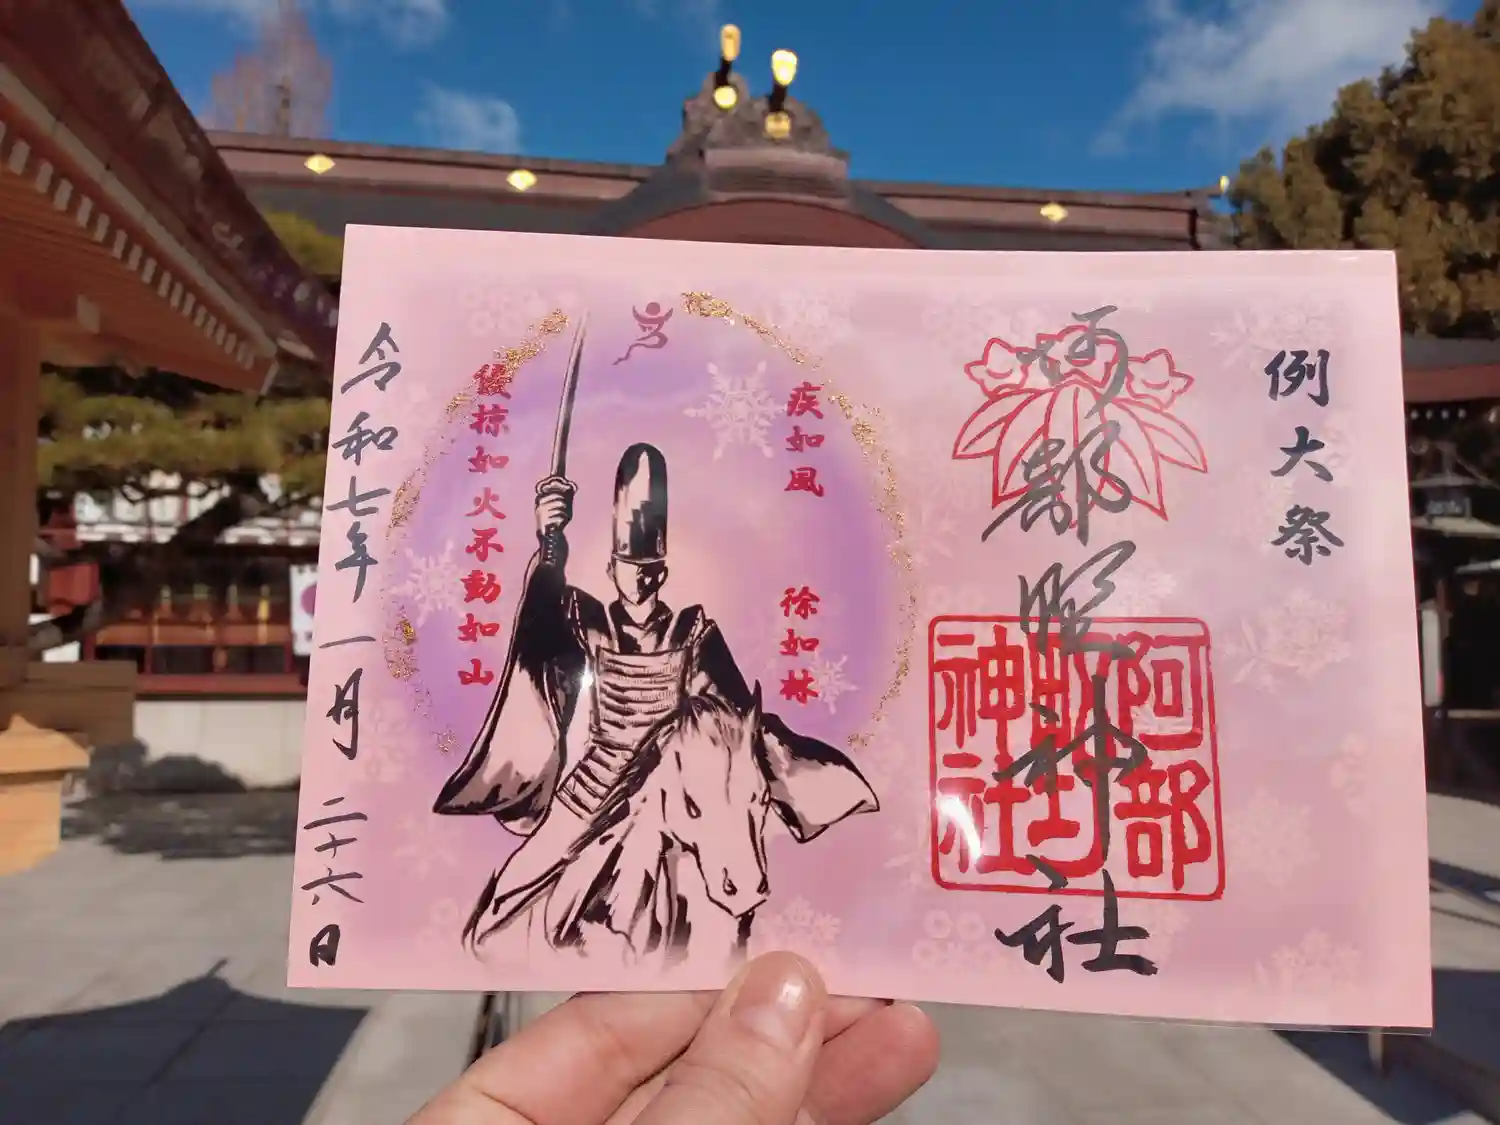 例大祭
阿部野神社
阿部野神社
疾如風
徐如林
侵掠如火不動如山
令和七年一月二十六日